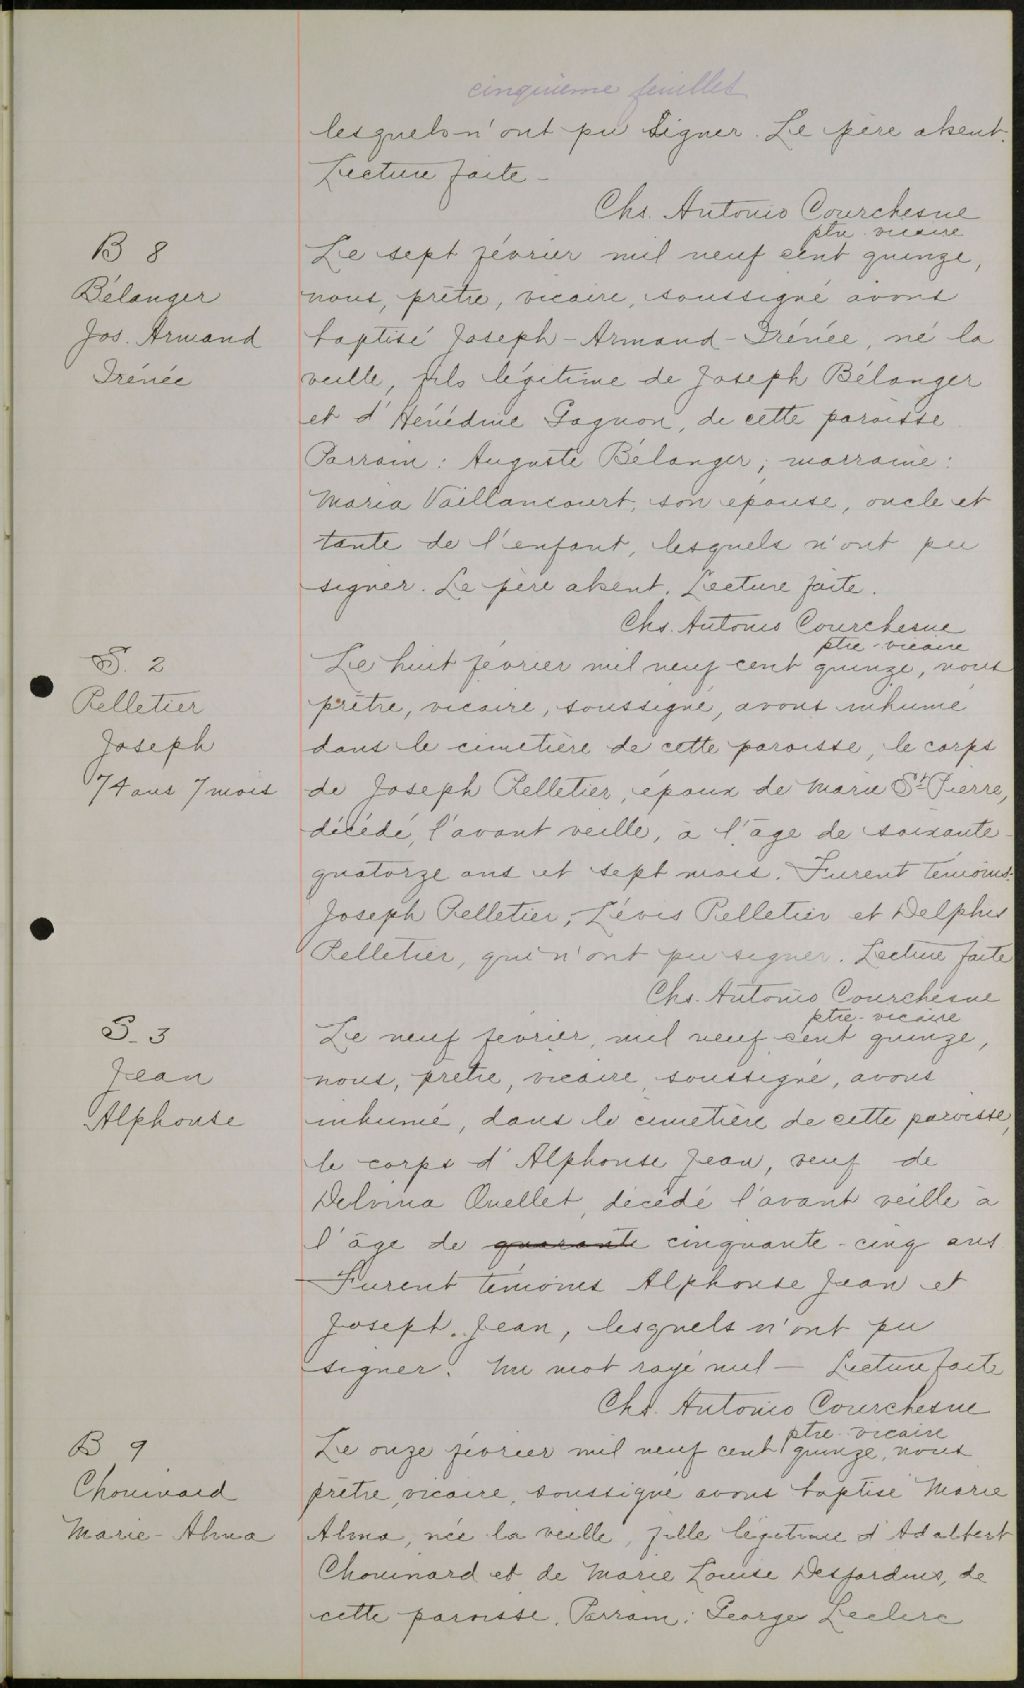 cinquième feuillet
lesquels n'ont pu signer. Le père absent.
Lecture faite -
Chs. Antonio Courchesne
ptre vicaire
B 8
Bélanger
Jos. Armand
Irénée
Le sept février mil neuf cent quinze,
nous, prêtre, vicaire, soussigné avons
baptisé Joseph-Armand-Irénée, né la
veille, fils légitime de Joseph Bélanger
et d'Hénédine Gagnon, de cette paroisse.
Parrain: Auguste Bélanger; marraine:
Maria Vaillancourt, son épouse, oncle et
tante de l'enfant, lesquels n'ont pu
signer. Le père absent. Lecture faite.
Chs. Antonio Courchesne
ptre-vicaire
S. 2
Pelletier
Joseph
74 ans 7 mois
Le huit février mil neuf cent quinze, nous
prêtre, vicaire, soussigné, avons inhumé
dans le cimetière de cette paroisse, le corps
de Joseph Pelletier, époux de Marie St Pierre,
décédé, l'avant veille, à l'âge de soixante-
quatorze ans et sept mois. Furent témoins:
Joseph Pelletier, Lévis Pelletier et Delphis
Pelletier, qui n'ont pu signer. Lecture faite
Chs. Antonio Courchesne
ptre-vicaire
S. 3
Jean
Alphonse
Le neuf février, mil neuf cent quinze,
nous, prêtre, vicaire, soussigné, avons
inhumé, dans le cimetière de cette paroisse,
le corps d'Alphonse Jean, veuf de
Delvina Ouellet, décédé l'avant veille à
l'âge de quarante cinquante-cinq ans
Furent témoins Alphonse Jean et
Joseph Jean, lesquels n'ont pu
signer. Un mot rayé nul - Lecture faite
Chs. Antonio Courchesne
ptre-vicaire
B 9
Chouinard
Marie-Alma
Le onze février mil neuf cent quinze, nous
prêtre, vicaire, soussigné avons baptisé Marie
Alma, née la veille, fille légitime d'Adalbert
Chouinard et de Marie Louise Desjardins, de
cette paroisse. Parrain: George Leclerc